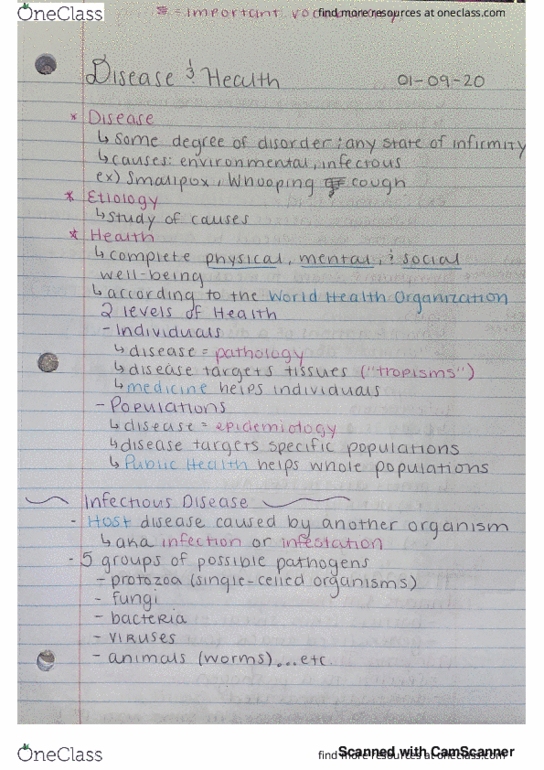 OneClass
* = important
find more resources at oneclass.com
Disease & Health 01-09-20
* Disease
↳ some degree of disorder; any state of infirmity
↳ causes: environmental, infectious
ex) Smallpox, Whooping cough
* Etiology
↳ study of causes
* Health
↳ complete physical, mental, & social
well-being
↳ according to the World Health Organization
2 levels of Health
- Individuals
↳ disease = pathology
↳ disease targets tissues ("tropisms")
↳ medicine helps individuals
- Populations
↳ disease = epidemiology
↳ disease targets specific populations
↳ Public Health helps whole populations
Infectious Disease
- Host disease caused by another organism
↳ aka infection or infestation
- 5 groups of possible pathogens
- protozoa (single-celled organisms)
- fungi
- bacteria
- viruses
- animals (worms)...etc
OneClass
find more resources at oneclass.com
Scanned with CamScanner